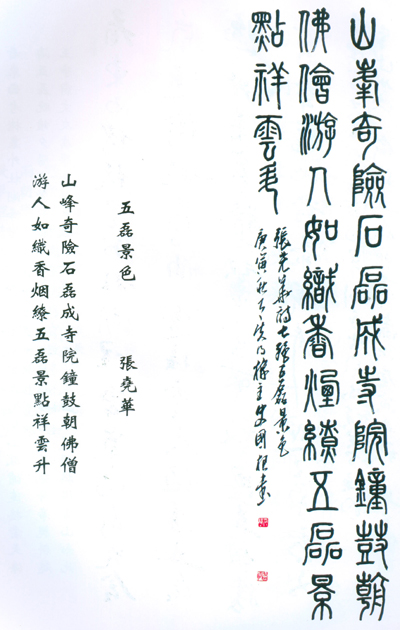 山峯奇險石磊成寺院鐘鼓朝
佛僧游人如織香煙繚五磊景
點祥雲升
張尧華詩七絕五磊景色
庚寅秋
五磊景色 張堯華
山峰奇險石磊成寺院鐘鼓朝佛僧
游人如織香烟繚五磊景點祥雲升